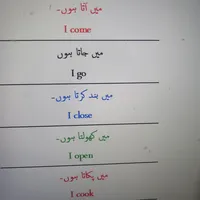 میں آتا ہوں۔
I come
میں جاتا ہوں
I go
میں بند کرتا ہوں۔
I close
میں کھولتا ہوں۔
I open
میں پکاتا ہوں۔
I cook